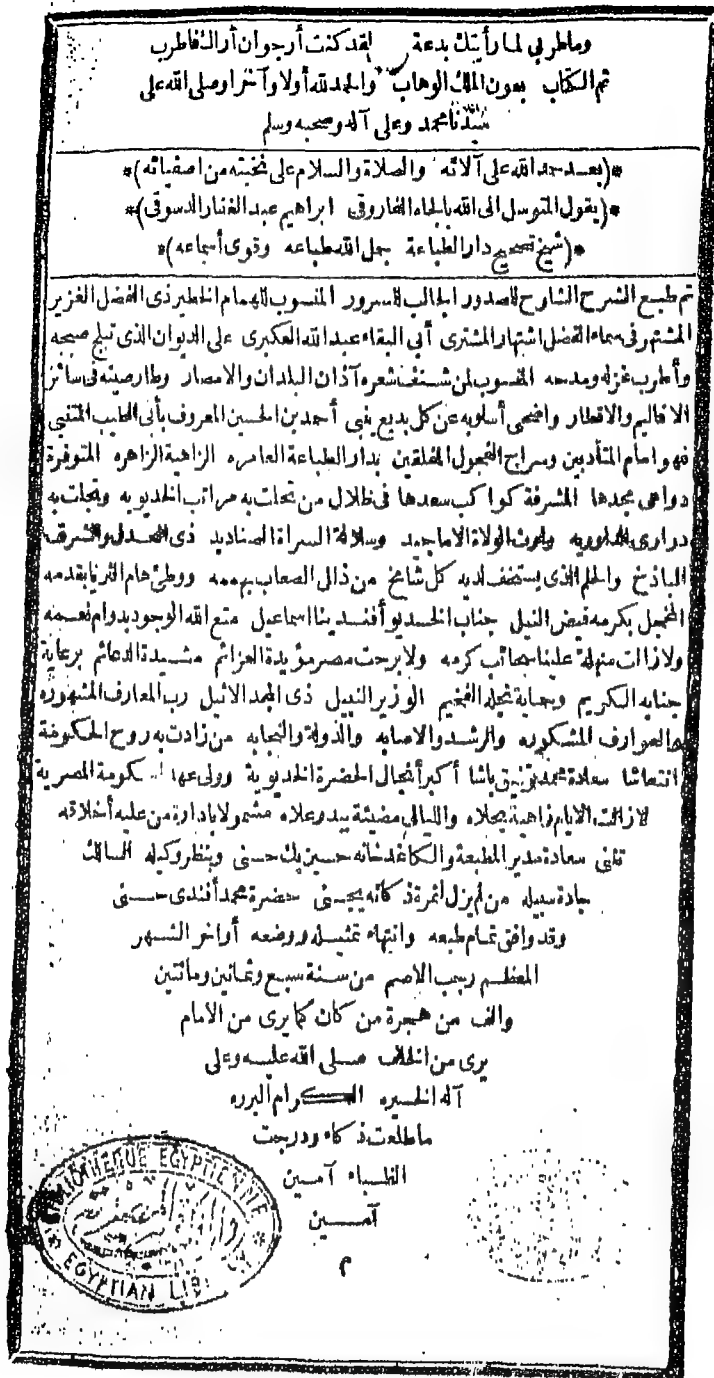 وما طربى لما رأيتك بدعة لقد كنت أرجوان أراك فاطرب
تم الكتاب بعون الملك الوهاب والحمد لله أولا وآخرا وصلى الله على
سيدنا محمد وعلى آله وصحبه وسلم
*(بعد حمد الله على آلائه والصلاة والسلام على نخبته من اصفيائه)*
*(يقول المتوسل الى الله بالجاه الفاروقى ابراهيم عبد الغفار الدسوقى)*
*(شيخ تصحيح دار الطباعة جمل الله طباعه وقوى أسماعه)*
تم طبع الشرح الشارح للصدور الجالب للسرور المنسوب للهمام الخطير ذى الفضل الغزير
المشتهر فى سماء الفضل اشتهار المشترى أبى البقاء عبد الله العكبرى على الديوان الذى تبلج صبحه
وأطرب غزله ومدحه المنسوب لمن شنف شعره آذان البلدان والامصار وطار صيته فى سائر
الاقاليم والاقطار واضحى أسلوبه عن كل بديع ينبى أحمد بن الحسين المعروف بأبى الطيب المتنبى
فهو امام المتأدبين وسراج الفحول المفلقين بدار الطباعة العامره الزاهية الزاهره المتوفرة
دواعى مجدها المشرقة كواكب سعدها فى ظلال من تحلت به مراتب الخديويه وتجلت به
درارى الداوريه وارث الولاة الاماجد وسلالة السراة الصناديد ذى المجد والشرف
الباذخ والحلم الذى يستخف لديه كل شامخ من ذلل الصعاب بهممه ووطئ هام الثريا بقدمه
المخجل بكرمه فيض النيل جناب الخديو أفندينا اسماعيل متع الله الوجود بدوام نعمه
ولا زالت منهلة علينا سحائب كرمه ولا برحت مصر مؤيدة العزائم مشيدة الدعائم برعاية
جنابه الكريم وبحماية نجله الفخيم الوزير النبيل ذى المجد الاثيل رب المعارف المشهوره
والعوارف المشكوره والرشد والاصابه والدولة والنجابه من زادت به روح الحكومة
انتعاشا سعادة محمد توفيق باشا أكبر أنجال الحضرة الخديوية وولى عهد الحكومة المصرية
لا زالت الايام زاهية بحلاه والليالى مضيئة ببدر علاه مشمولا بادارة من عليه أخلاقه
تثنى سعادة مدير المطبعة والكاغدخانه حسين بك حسنى وبنظر وكيله السالك
جادة سبيله من لم يزل لثمرة ذكائه يجتنى حضرة محمد أفندى حسنى
وقد وافق تمام طبعه وانتهاء تمثيله ووضعه أواخر الشهر
المعظم رجب الاصم من سنة سبع وثمانين ومائتين
والف من هجرة من كان كما يرى من الامام
يرى من الخلف صلى الله عليه وعلى
آله الخيره الكرام البرره
ما طلعت ذكاء ودرجت
الظباء آمين
آمــــين
م
BIBLIOTHEQUE EGYPTIENNE
EGYPTIAN